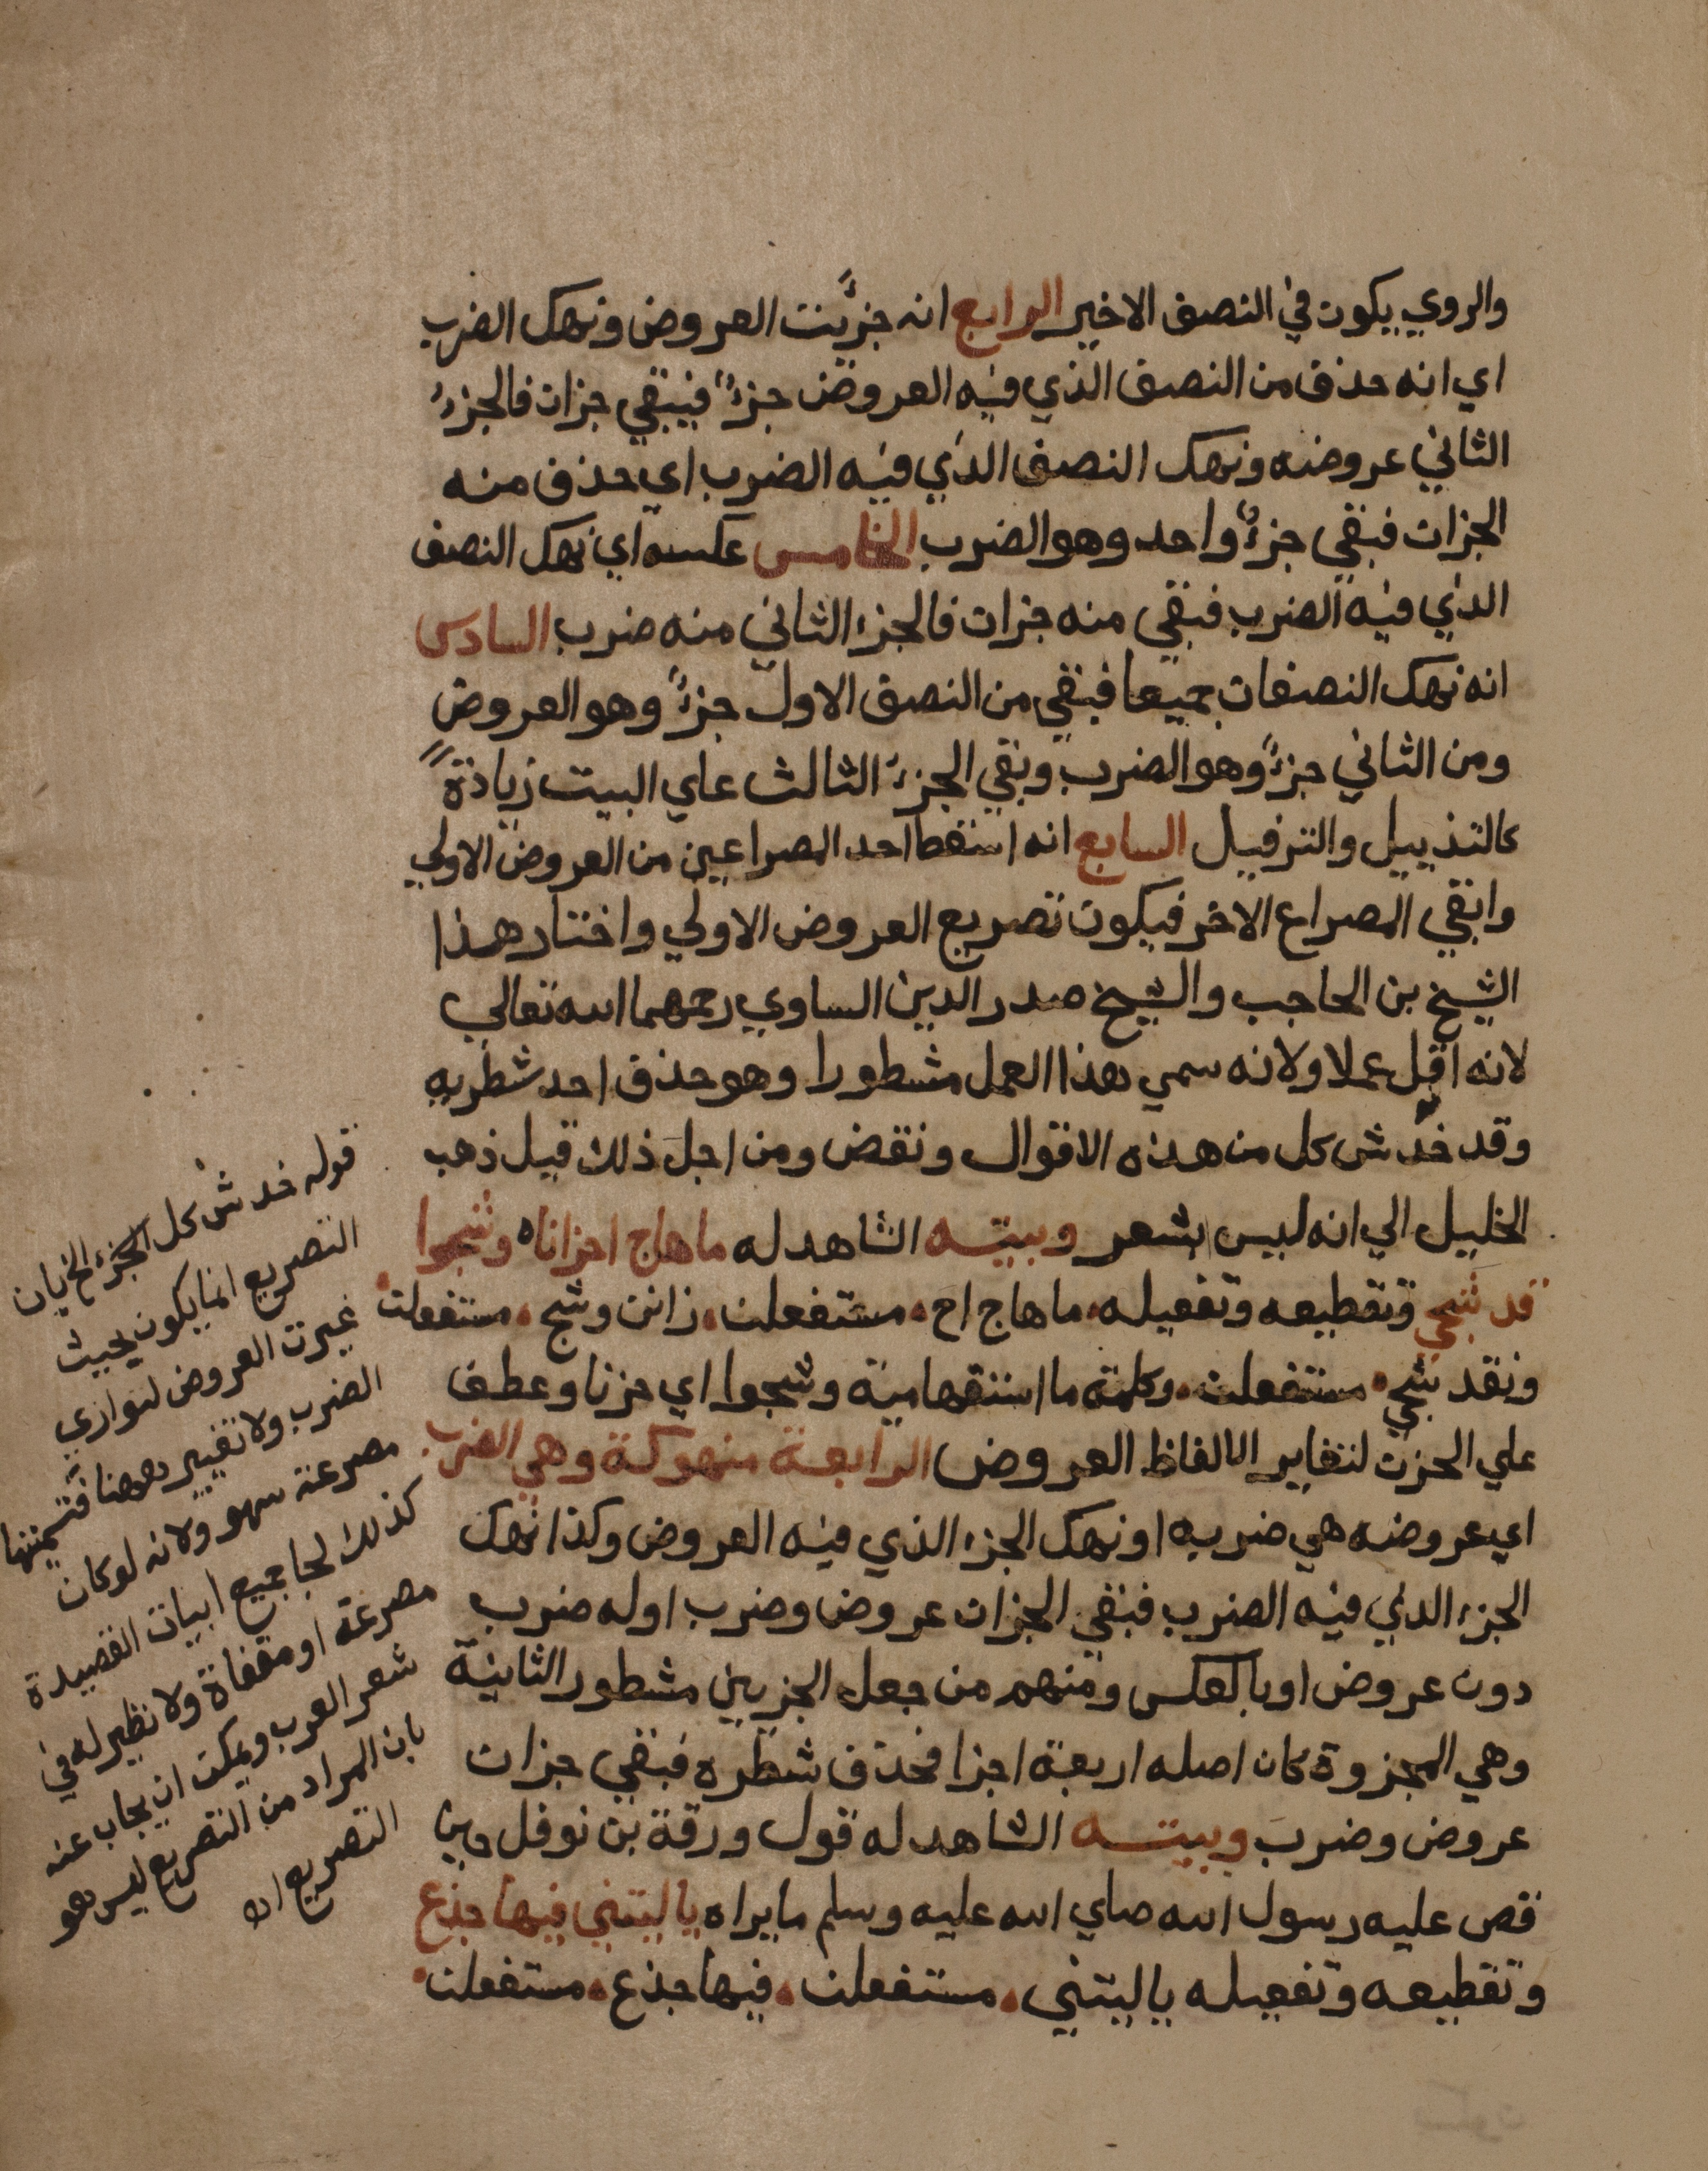 والروي يكون في النصف الاخير الرابع انه جزئت العروض ونهك الضرب
اي انه حذف من النصف الذي فيه العروض جزءٌ فيبقي جزان فالجزءُ
الثاني عروضه ونهك النصف الذي فيه الضرب اي حذف منه
الجزان فبقي جزءٌ واحد وهو الضرب الخامس عكسه اي نهك النصف
الذي فيه الضرب فبقي منه جزان فالجزء الثاني منه ضرب السادس
انه نهك النصفان جميعا فبقي من النصف الاول جزءٌ وهو العروض
ومن الثاني جزءٌ وهو الضرب وبقي الجزءُ الثالث علي البيت زيادةً
كالتذييل والترفيل السابع انه اسقط احد المصراعين من العروض الاولي
وابقي المصراع الاخر فيكون تصريع العروض الاولي واختار هذا
الشيخ بن الحاجب والشيخ صدر الدين الساوي رحمهما الله تعالي
لانه اقل عملا ولانه سمي هذا العمل مشطورا وهو حذف احد شطريه
وقد خُدش كل من هذه الاقوال ونقض ومن اجل ذلك قيل ذهب
الخليل الي انه ليس بشعر وبيته الشاهد له ما هاج احزانا وشجوا
قد شجي وتقطيعه وتفعيله ما هاج اح مستفعلن زانن وشج مستفعلن
ونقد شجي مستفعلن وكلمة ما استفهامية وشجوا اي حزنا وعطف
علي الحزن لتغاير الالفاظ العروض الرابعة منهوكة وهي الضرب
اي عروضه هي ضربه او نهك الجزء الذي فيه العروض وكذا نهك
الجزء الذي فيه الضرب فبقي الجزان عروض وضرب اوله ضرب
دون عروض او بالعكس ومنهم من جعل الجزيين مشطور الثانية
وهي المجزوة كان اصله اربعة اجزا فحذف شطره فبقي جزان
عروض وضرب وبيته الشاهد له قول ورقة بن نوفل حين
قص عليه رسول الله صلي الله عليه وسلم ما يراه يا ليتني فيها جذع
وتقطيعه وتفعيله يا ليتني مستفعلن فيها جذع مستفعلن
قوله خدش كل الجزء الخ بان
التصريع انما يكون بحيث
غيرت العروض لتوازي
الضرب ولا تغيير ههنا فتسميتها
مصرعة سهو ولانه لو كان
كذلك لجا جميع ابيات القصيدة
مصرعة او مقفاة ولا نظير له في
شعر العرب ويمكن ان يجاب عنه
بان المراد من التصريع ليس هو
التصريع اه